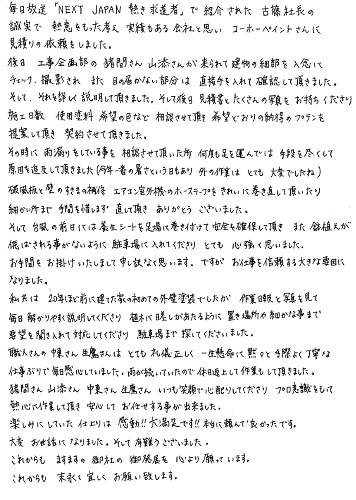 毎日放送「NEXT JAPAN 熱き求道者」で紹介された 古籏社長の
誠実で 熱意をもった考え 実績もある会社と思い コーホーペイントさんに
見積りの依頼をしました。
後日 工事企画部の 猪間さん 山添さんが来られて建物の細部を入念に
チェック、撮影され また 目の届かない部分は 直接手を入れて確認して頂きました。
そして、それを詳しく説明して頂きました。そして後日見積書とたくさんの写真をお持ちくださり
施工日数 使用塗料 希望の色など 相談させて頂き 希望どおりの納得のプランを
提案して頂き 契約させて頂きました。
その時に 雨漏りをしている事を 相談させて頂いた所 何度も足を運んでは 手段を尽くして
原因を追及して頂きました(今年一番の暑さという日もあり 外の作業は とても 大変でしたね)
破風板と壁のすきまの補修 エアコン室外機のホースのテープも きれいに巻き直して頂いたり
細かい所まで 手間を惜しまず 直して頂き ありがとう ございました。
そして 台風の前日には 養生シートを足場に巻き付けて 安全を確保して頂き また 鉢植えが
飛ばされる事がないように 駐車場に入れてくださり とても 心強く思いました。
お手間を お掛けいたしまして 申し訳なく思います。ですが お仕事を信頼する大きな要因に
なりました。
私共は 20年ほど前に建てた家の初めての外壁塗装でしたが 作業日報と写真を見て
毎日 解かりやすく説明してくださり 植木に日差しがあたるように 置き場所や細かな事まで
要望を聞き入れて対応してくださり 駐車場まで 探してくださいました。
職人さんの 中東さん 生鷹さんは とても 礼儀正しく 一生懸命に 黙々と手際よく丁寧な
仕事ぶりで毎日感心していました。雨が続いていたので休日返上して作業もして頂きました。
猪間さん 山添さん 中東さん 生鷹さん いつも笑顔で心配りしてくださり プロ意識をもって
熱心に作業して頂き 安心して お任せする事が出来ました。
楽しみにしていた 仕上りは 感動!! 大満足です!! 本当に頼んで良かったです。
大変 お世話になりました。そして 有難うございました。
これからも ますますの 御社の 御発展を 心より願っています。
これからも 末永く宜しく お願い致します。